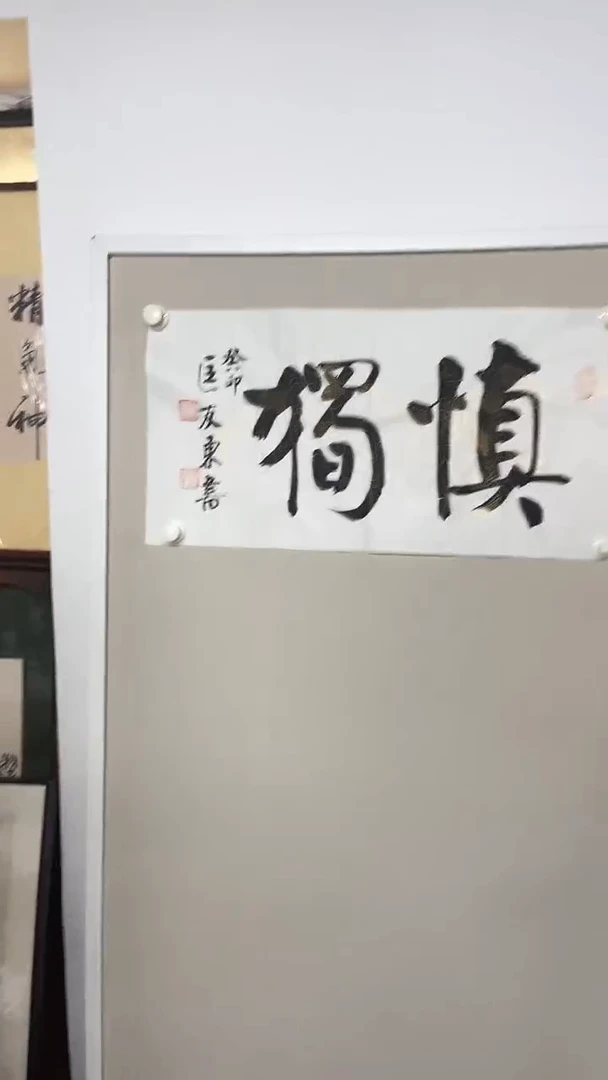 慎獨
癸卯
匡友東書
精氣神